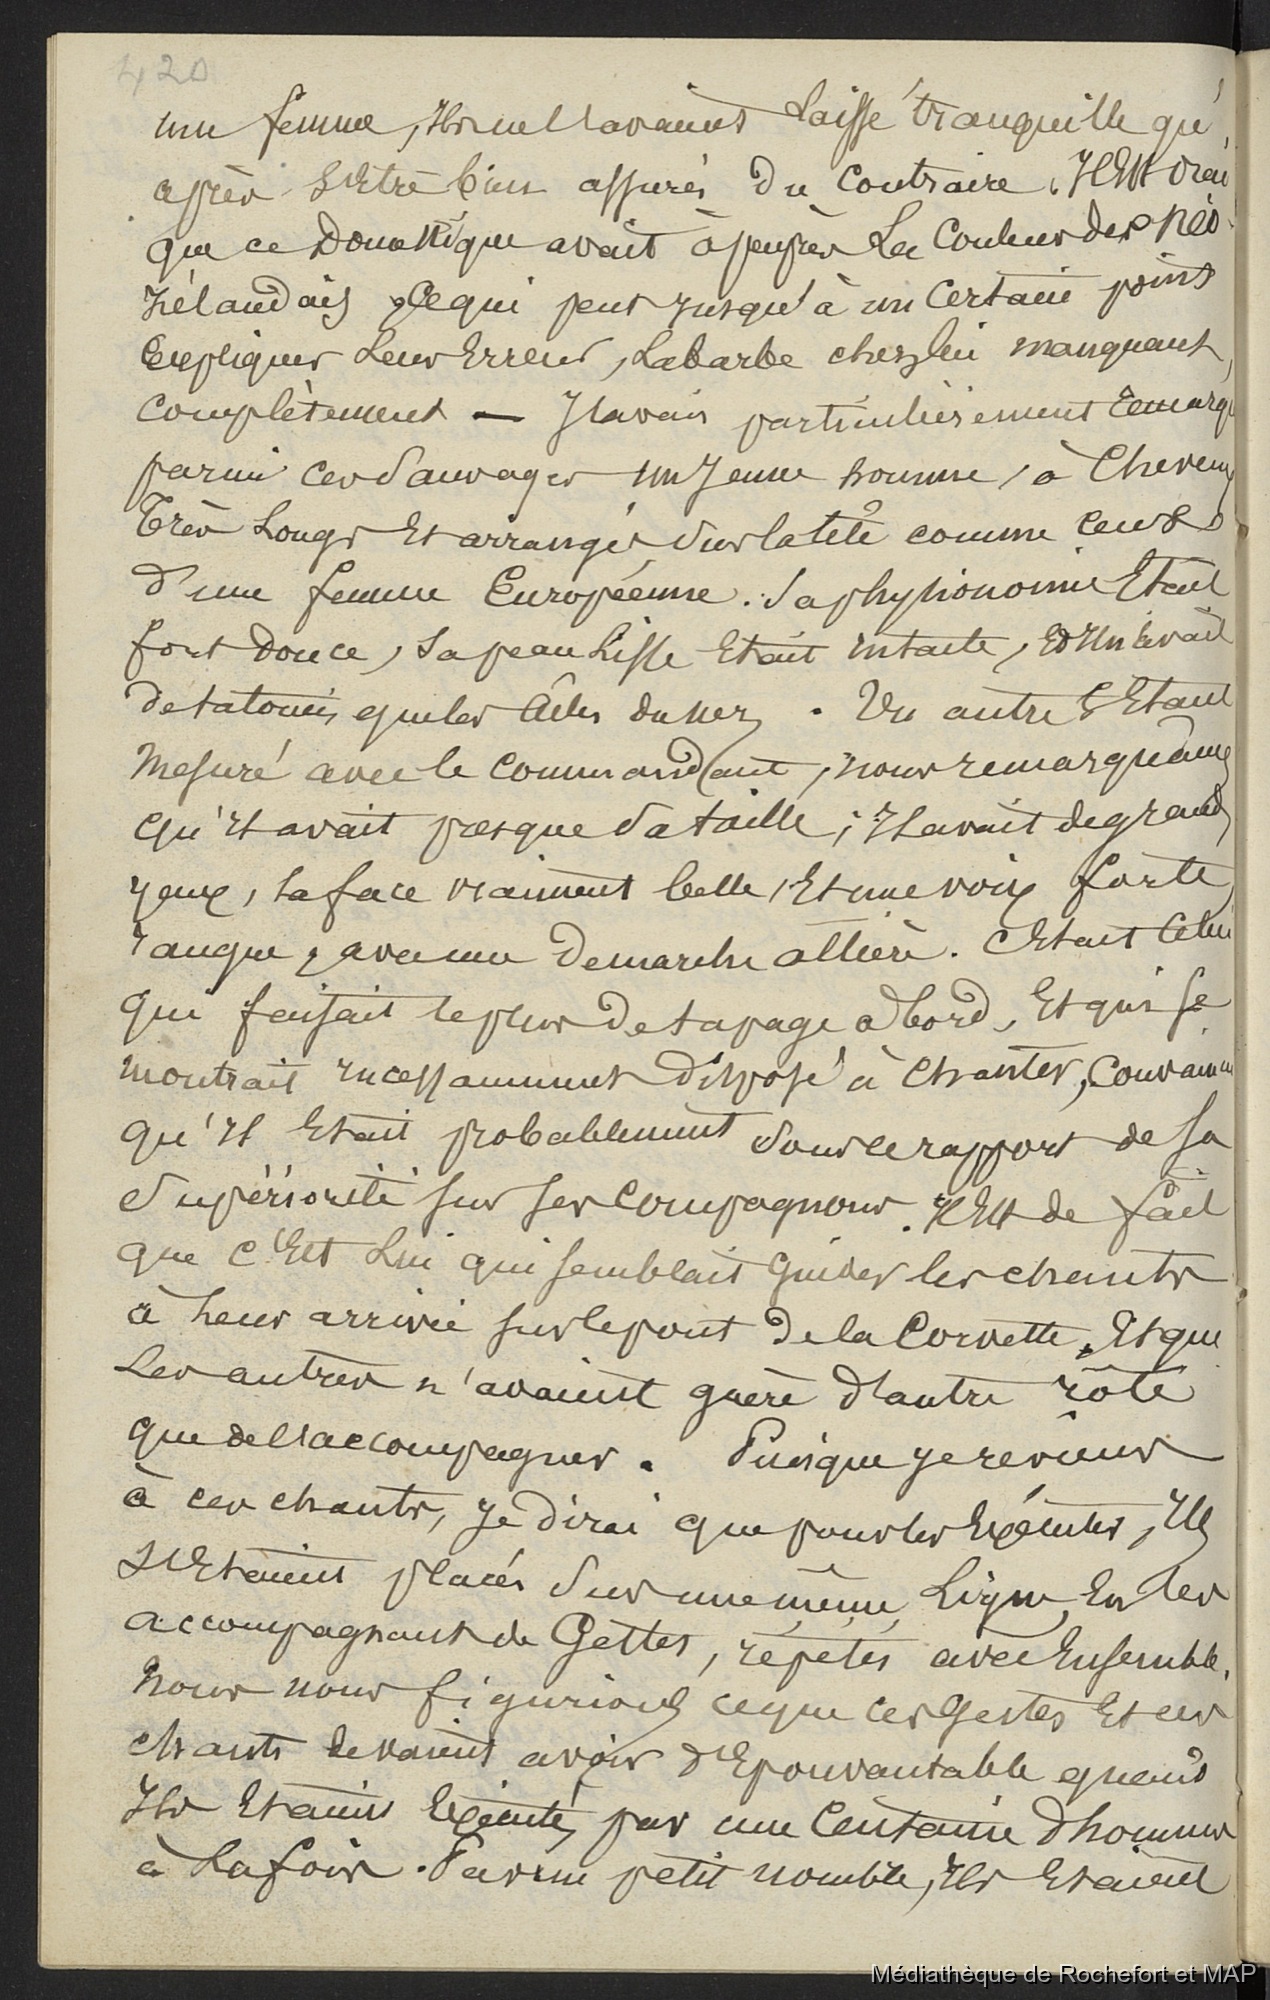 420
une femme, Ils ne l'avaient Laissé tranquille qu'
après s'Etre bien assurés du Contraire. Il Est vrai
que ce Domestique avait àpeuprès La Couleur des Néo-
Zélandais, Cequi peut Jusqu'à un Certain point
Expliquer Leur Erreur, La barbe chez lui manquant
Complètement — J'avais particulièrement remarqué
parmi ces Sauvages un Jeune homme, à Cheveux
Très Longs Et arrangés Sur la tête comme Ceux
d'une femme Européenne. Sa physionomie Etait
fort Douce, Sa peau Lisse Etait intacte, Et Il n'avait
de tatoués que les Ailes du nez. Un autre S'Etant
Mesuré avec le Commandant, nous remarquâmes
qu'Il avait presque Sa taille; Il avait de grands
yeux, la face vraiment belle, Et une voix forte,
rauque, avec une Demarche altière. C'Etait Celui
qui faisait le plus de tapage abord, Et qui se
montrait Incessamment Disposé à Chanter, Convaincu
qu'Il Etait probablement Sous ce rapport de sa
Supériorité sur ses Compagnons. Il Est de fait
que c'Est Lui qui semblait Guider les chants
à Leur arrivée sur le pont de la Corvette, Et que
Les autres n'avaient guère d'autre rôle
que de l'accompagner. Puisque je reviens
à ces chants, Je dirai que pour les Exécuter, Ils
S'Etaient placés Sur une même Ligne, En les
accompagnant de Gestes, répétés avec Ensemble.
Nous nous figurions ceque ces Gestes Et ces
chants devaient avoir d'Epouvantable quand
Ils Etaient Exécutés par une Centaine d'hommes
à La fois. Par un petit nombre, Ils Etaient
Médiathèque de Rochefort et MAP